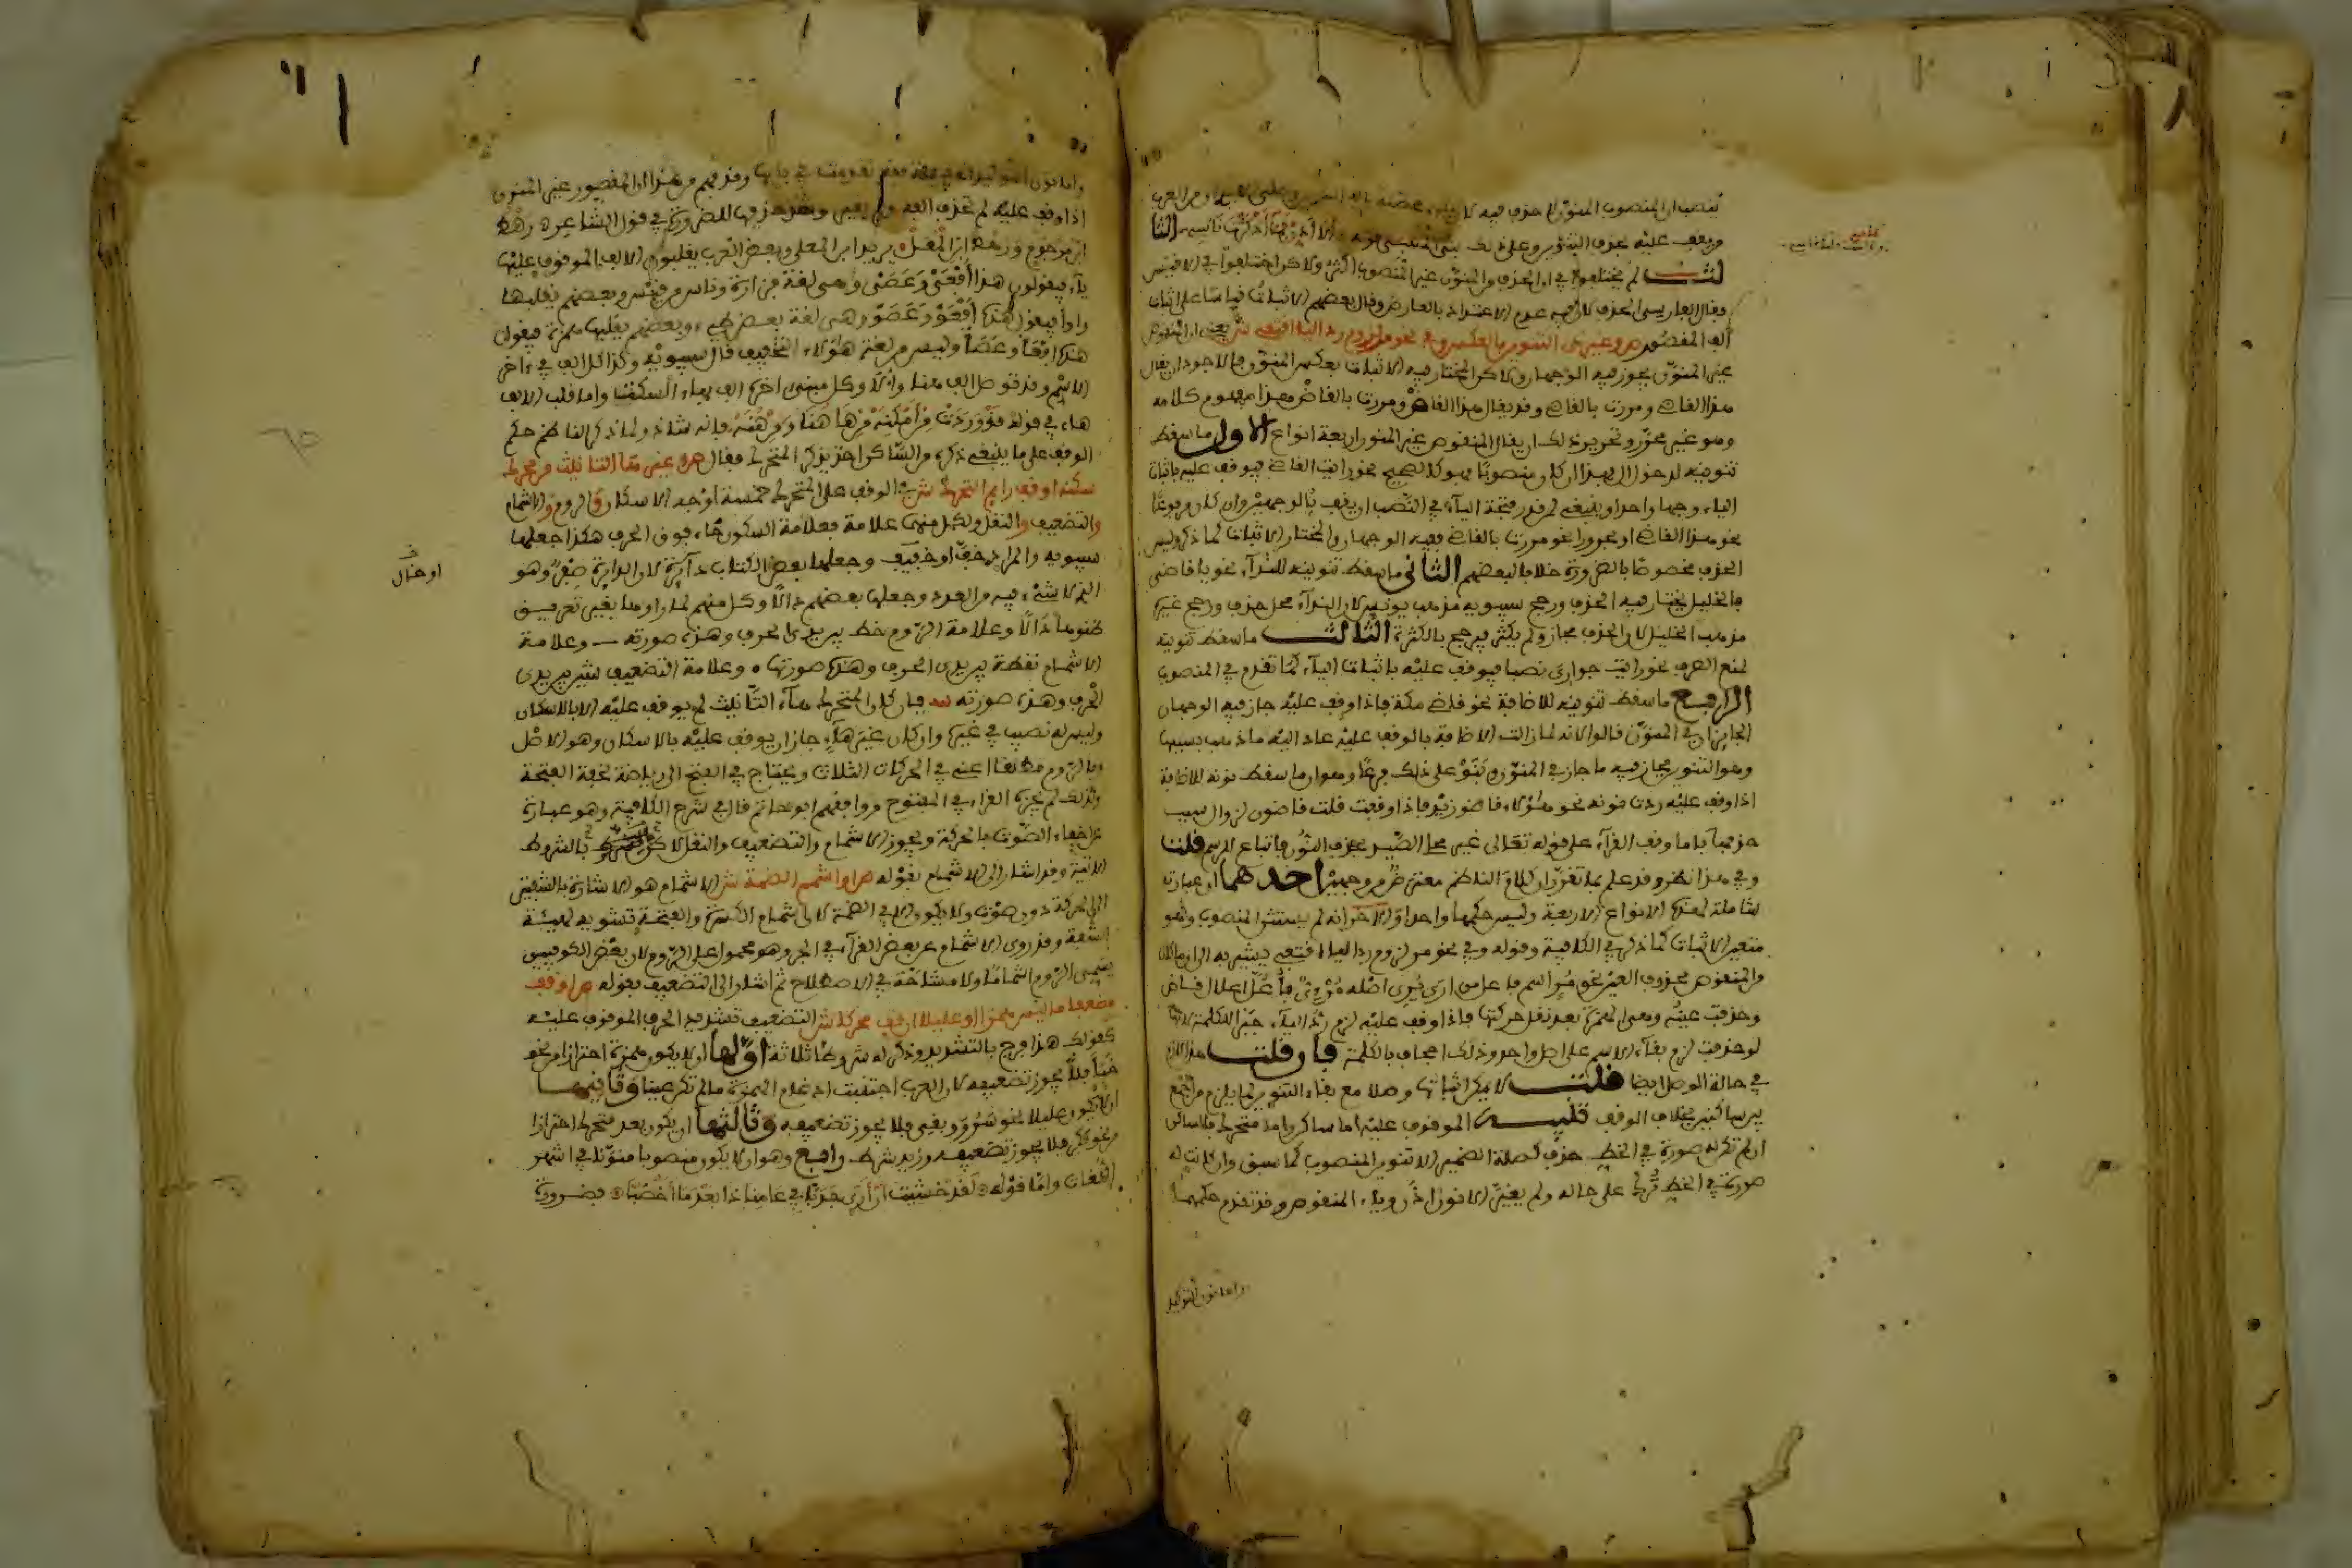 تنصب ان المنصوب المنون لا حذف فيه
ويقف عليه بحذف التنوين وعلى ذلك بنى المتنبي قوله
لث لم يختلفوا في ان الحذف في المنون غير المنصوب اكثر ولاكن اختلفوا في الافيس
وقال الفارسي الحذف لان فيه عدم الاعتداد بالعارض وقال بعضهم الاثبات قياسا على اثبات
ألف المقصور ص وغير ذي التنوين بالعكس وفي نحو مر لزوم رد اليا اقتفي ش يعني ان المنقوص
غير المنون يجوز فيه الوجهان ولاكن المختار فيه الاثبات بعكس المنون فالاجود ان يقال
هذا القاضي ومررت بالقاضي وقد يقال هذا القاض ومررت بالقاض هذا مفهوم كلامه
وهو غير محرر وتحرير ذلك ان يقال المنقوص غير المنون اربعة انواع الاول ما سقط
تنوينه لدخول ال فهذا ان كان منصوبا فهو كالصحيح نحو رايت القاضي فيوقف عليه باثبات
الياء وجها واحدا وينبغي لمن قدر فتحة الياء في النصب ان يقف بالوجهين وان كان مرفوعا
نحو هذا القاضي او مجرورا نحو مررت بالقاضي ففيه الوجهان والمختار الاثبات كما ذكر وليس
الحذف مخصوصا بالضرورة خلافا لبعضهم الثاني ما سقط تنوينه للنداء نحو يا قاضي
فالخليل يختار فيه الحذف ورجح سيبويه مذهب يونس لان النداء محل حذف ورجح غيره
مذهب الخليل لان الحذف مجاز ولم يكثر فيرجح بالكثرة الثالث ما سقط تنوينه
لمنع الصرف نحو رايت جواري نصبا فيوقف عليه باثبات الياء كما تقدم في المنصوب
الرابع ما سقط تنوينه للاضافة نحو قاضي مكة فاذا وقف عليه جاز فيه الوجهان
الجائزان في المنون قالوا لانه لما زالت الاضافة بالوقف عليه عاد اليه ما ذهب بسببها
وهو التنوين فجاز فيه ما جاز في المنون وبنوا على ذلك فرعا وهو ان ما سقط نونه للاضافة
اذا وقف عليه ردت نونه نحو هؤلاء قاضو زيد فاذا وقفت قلت قاضون لزوال سبب
حذفها فاما وقف القراء على قوله تعالى غير محلي الصيد بحذف النون فاتباع للرسم قلت
وفي هذا نظر وقد علم بما تقرر ان كلام الناظم معترض من وجهين احدهما ان عبارته
شاملة لهذه الانواع الاربعة وليس حكمها واحدا والاخر انه لم يستثن المنصوب وهو
متعين الاثبات كما ذكر في الكافية وقوله وفي نحو مر لزوم رد اليا اقتفي يشير به الى انه اذا كان
والمنقوص محذوف العين نحو مر اسم فاعل من ارى يري اصله مرئي فأعل اعلال قاض
وحذفت عينه وهي الهمزة بعد نقل حركتها فاذا وقف عليه لزم رد الياء جبرا للكلمة لانه
لو حذفت لزم بقاء الاسم على اصل واحد وذلك اجحاف بالكلمة فان قلت هذا لازم
في حالة الوصل ايضا قلت لا يمكن اثباتها وصلا مع بقاء التنوين لما يلزم من الجمع
بين ساكنين بخلاف الوقف تنبيه الموقوف عليه اما ساكن واما متحرك فالساكن
ان لم تكن له صورة في الخط حذف كصلة الضمير الا تنوين المنصوب كما سبق وان كانت له
صورة في الخط ترك على حاله ولم يغير الا نون اذن وياء المنقوص وقد تقدم حكمهما
واما نون التوكيد
واما نون التوكيد الخفيفة فقد تقدمت في بابها وقد فهم من هذا ان المقصور غير المنون
اذا وقف عليه لم تحذف الفه ولم يغير وشذ حذفها للضرورة في قول الشاعر ه رهط
ابن مرجوم ورهط ابن المعل ه يريد ابن المعلى وبعض العرب يقلبون الالف الموقوف عليها
ياء فيقولون هذا أفعي وعصي وهي لغة فزارة وناس من قيس وبعضهم يقلبها
واوا فيقول هذا أفعو وعصو وهي لغة بعض طيء وبعضهم يقلبها همزة فيقول
هذا افعأ وعصأ وليس من لغة هؤلاء التخفيف قال سيبويه وكذا كل الف في ءاخر
الاسم وقد توصل الف هنا وألا وكل مبني اخره الف بهاء السكت واما قلب الالف
هاء في قوله قد وردت من أمكنه من هاهنا ومن هنه فانه شاذ ولما ذكر الناظم حكم
الوقف على ما ينبغي ذكره من الساكن اخذ يذكر المتحرك فقال ص وغير ها التانيث من محرك
سكنه او قف رايم التحرك ش في الوقف على المتحرك خمسة اوجه الاسكان والروم والاشمام
والتضعيف والنقل ولكل منها علامة فعلامة السكون خاء فوق الحرف هكذا جعلها
سيبويه والمراد خف او خفيف وجعلها بعض الكتاب دائرة لان الدايرة صفر وهو
الذي لا شيء فيه من العدد وجعلها بعضهم دالا وكل منهم لما راوها بغير تعريف
ظنوها دالا وعلامة الروم خط بين يدي الحرف وهذه صورته — وعلامة
الاشمام نقطة بين يدي الحرف وهذه صورتها ٠ وعلامة التضعيف شين بين يدي
الحرف وهذه صورته س فان كان المتحرك هاء التانيث لم يوقف عليه الا بالاسكان
وليس له نصيب في غيره وان كان غير هاء جاز ان يوقف عليه بالاسكان وهو الاصل
وبالروم مطلقا اعني في الحركات الثلاث ويحتاج في الفتح الى رياضة لخفة الفتحة
ولذلك لم يجزه الفراء في المفتوح ووافقهم ابو حاتم قال في شرح الكافية وهو عبارة
عن اخفاء الصوت بالحركة ويجوز الاشمام والتضعيف والنقل لاكن بالشروط
الاتية وقد اشار الى الاشمام بقوله ص او اشمم الضمة ش الاشمام هو الاشارة بالشفتين
الى الحركة دون صوت ولا يكون الا في الضمة لان اشمام الكسرة والفتحة تشويه لهيئة
الشفة وقد روي الاشمام عن بعض القراء في الجر وهو محمول على الروم لان بعض الكوفيين
يسمي الروم اشماما ولا مشاحة في الاصطلاح ثم اشار الى التضعيف بقوله ص او قف
مضعفا ما ليس همزا او عليلا ان قفى محركا ش التضعيف تشديد الحرف الموقوف عليه
كقولك هذا فرج بالتشديد وذكر له شروطا ثلاثة اولها ان لا يكون همزة احترازا من نحو
خبأ فلا يجوز تضعيفه لان العرب اجتنبت ادغام الهمزة ما لم تكن عينا وثانيها
ان لا يكون عليلا نحو سرو وبقي فلا يجوز تضعيفه وثالثها ان يكون بعد متحرك احترازا
من نحو بكر فلا يجوز تضعيفه وزيد شرط رابع وهو ان لا يكون منصوبا منونا في اشهر
اللغات واما قوله ه لقد خشيت ان أرى جدبا في عامنا ذا بعدما أخصبا ه فضرورة
او خال